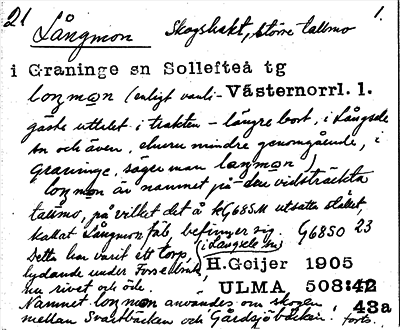 21 Långmon Skogstrakt, större tallmo 1.
i Graninge sn Sollefteå tg
loŋmo̲n (enligt vanli- Västernorrl. l.
gaste uttalet i trakten – längre bort, i Långsele
sn och även, ehuru mindre genomgående, i
Graninge, säger man laŋmo̲n)
loŋmo̲n är namnet på den vidsträckta
tallmo, på vilket det å kG68SM utsatta stället,
kallat Långmon fäb. befinner sig. G68SO 23
Detta har varit ett torp, (i Långsele sn)
lydande under Forse bruk, H.Geijer 1905
nu rivet och öde. ULMA 508:42
Namnet loŋmo̲n användes om skogen 43a
mellan Svartbäcken och Gårdsjöbäcken. forts.